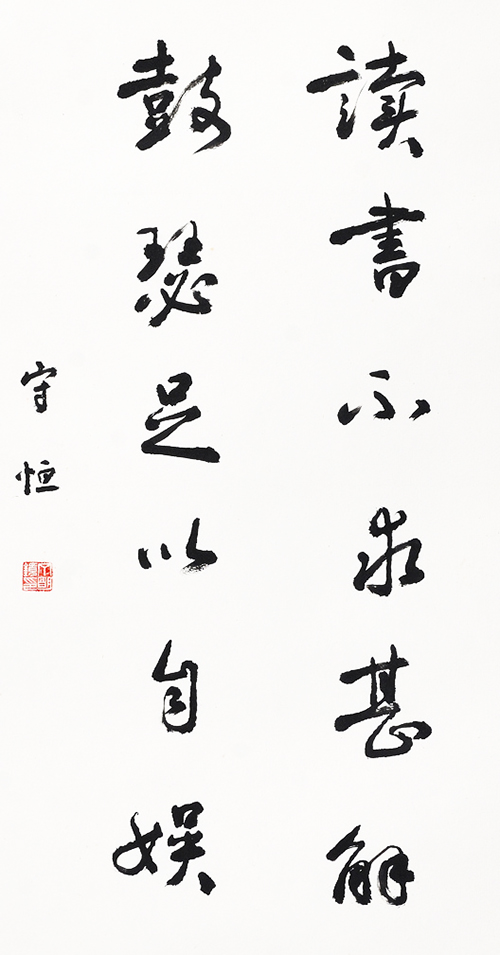 讀書不求甚解
鼓瑟足以自娱
守恒